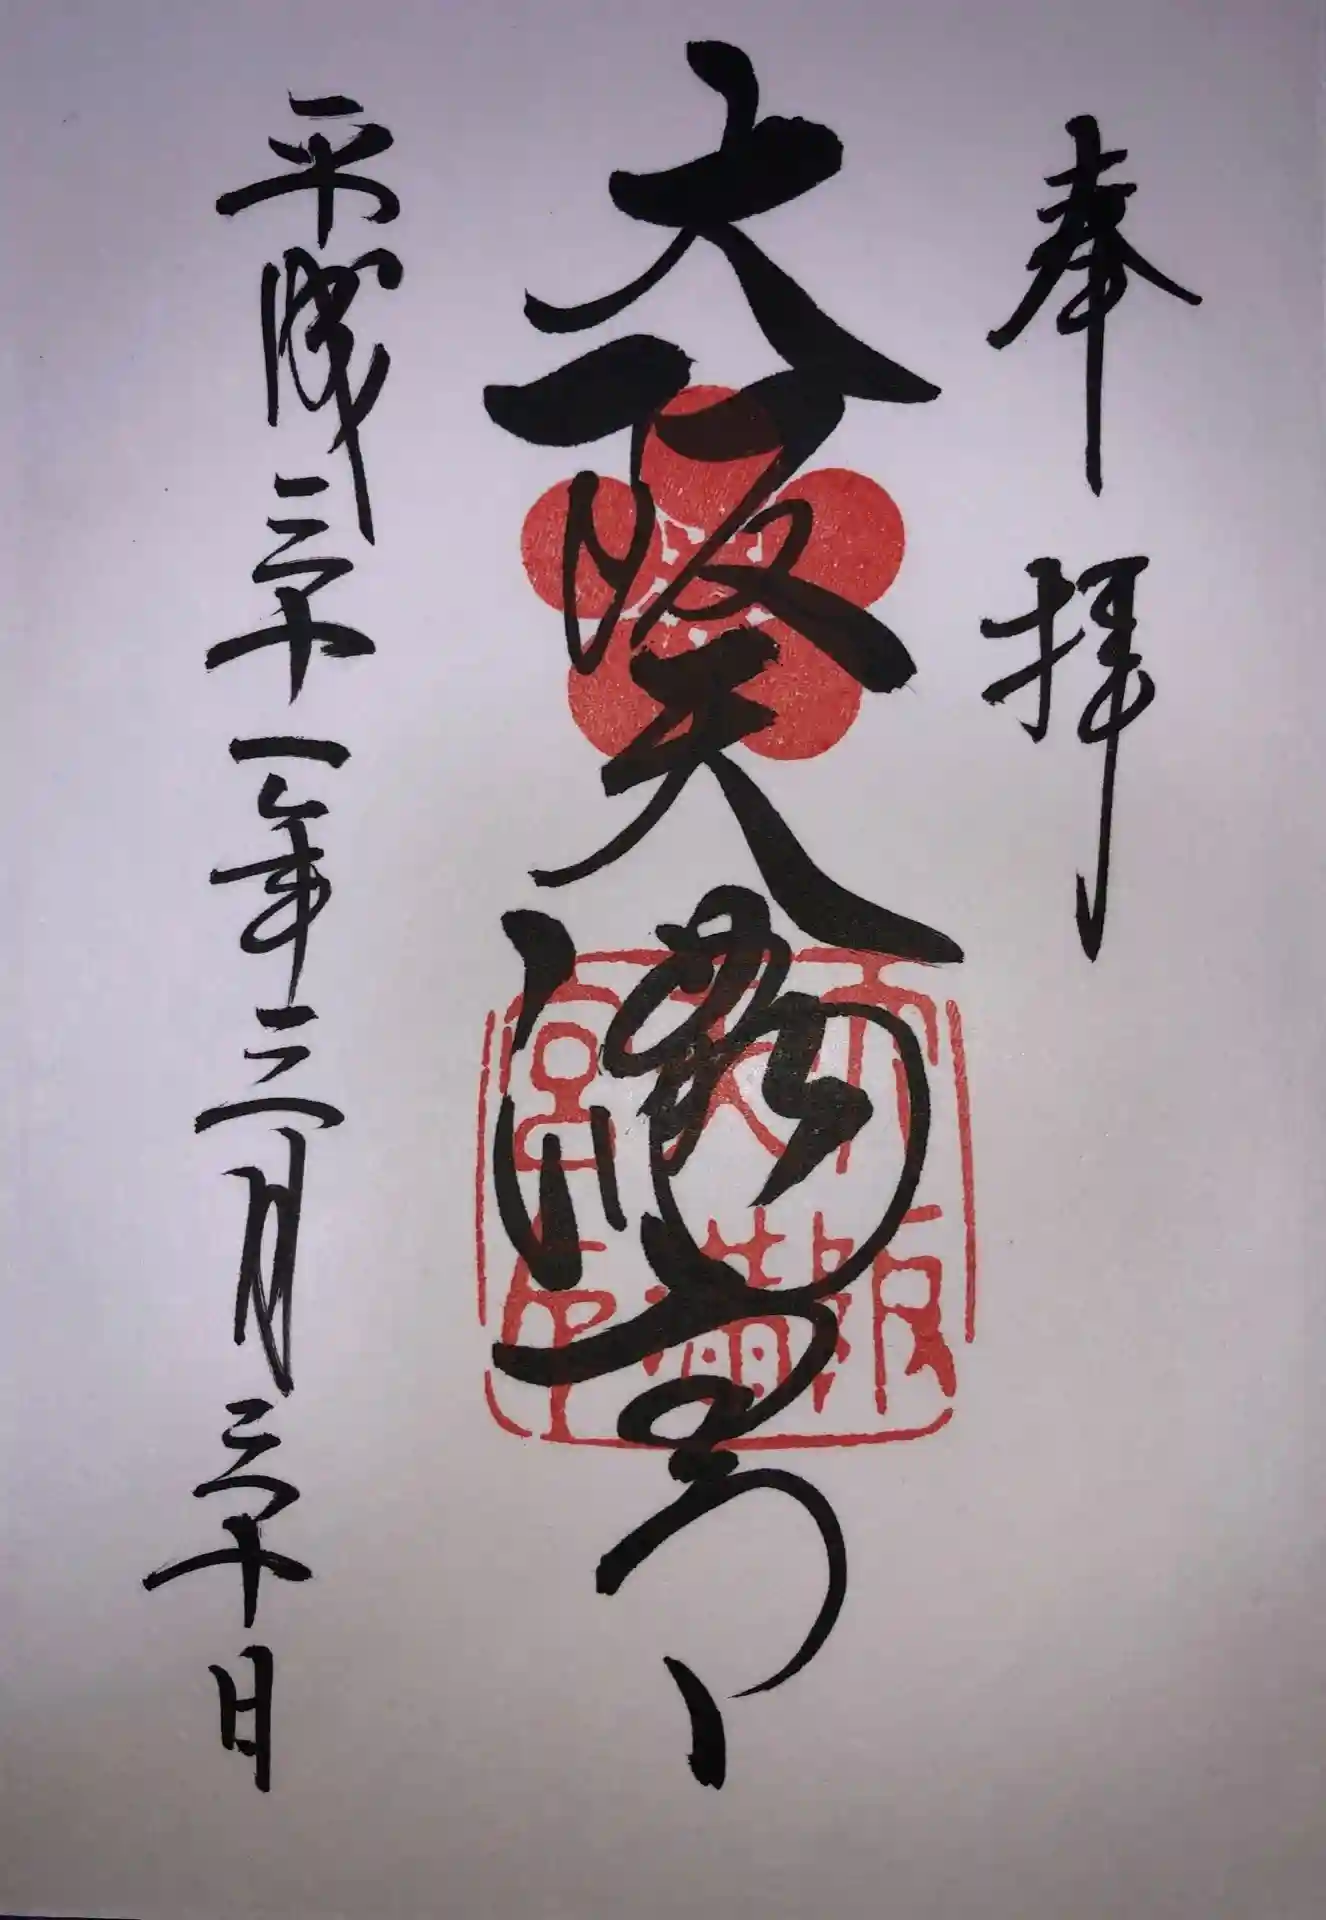 奉拝
大阪天満宮
平成三十一年三月三十日
天満宮
大阪